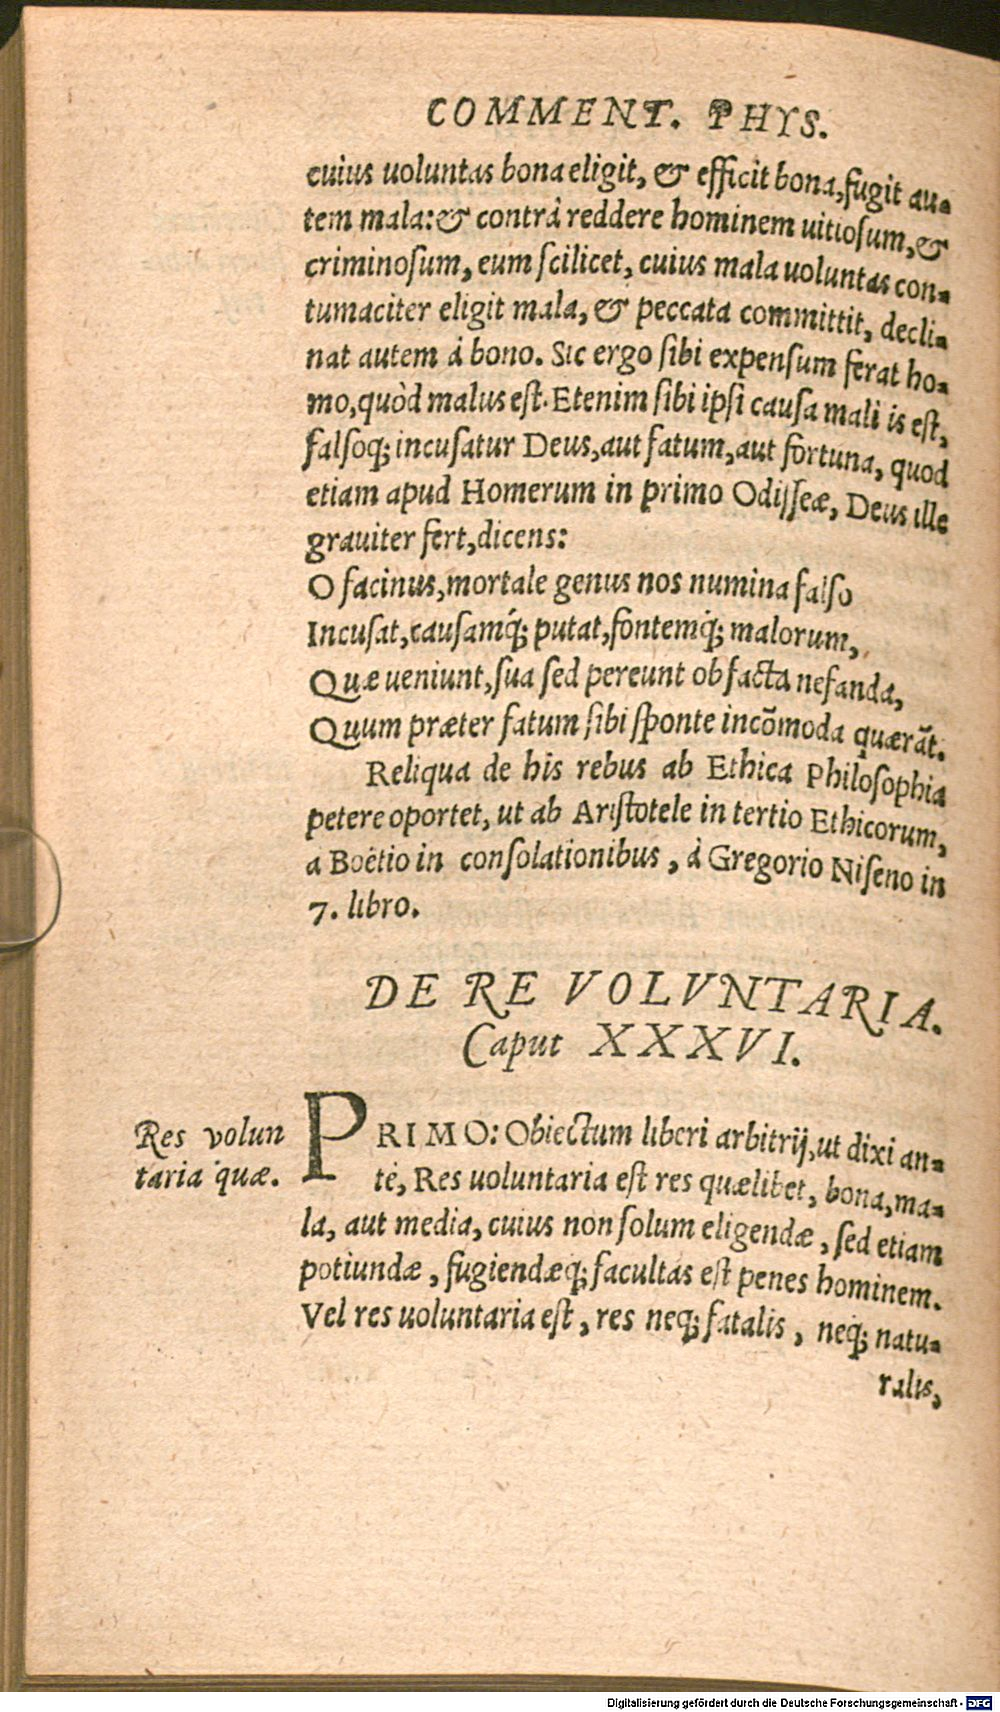 COMMENT. PHYS.
cuius uoluntas bona eligit, & efficit bona, fugit au-
tem mala: & contrà reddere hominem uitiosum, &
criminosum, eum scilicet, cuius mala uoluntas con-
tumaciter eligit mala, & peccata committit, decli-
nat autem à bono. Sic ergo sibi expensum ferat ho-
mo, quòd malus est. Etenim sibi ipsi causa mali is est,
falsoq; incusatur Deus, aut fatum, aut fortuna, quod
etiam apud Homerum in primo Odisseæ, Deus ille
grauiter fert, dicens:
O facinus, mortale genus nos numina falso
Incusat, causamq́; putat, fontemq́; malorum,
Quæ ueniunt, sua sed pereunt ob facta nefanda,
Quum præter fatum sibi sponte incōmoda quærāt.
Reliqua de his rebus ab Ethica Philosophia
petere oportet, ut ab Aristotele in tertio Ethicorum,
a Boëtio in consolationibus, à Gregorio Niseno in
7. libro.
DE RE VOLVNTARIA.
Caput XXXVI.
Res volun
taria quæ.
PRIMO: Obiectum liberi arbitrij, ut dixi an-
tè, Res uoluntaria est res quælibet, bona, ma-
la, aut media, cuius non solum eligendæ, sed etiam
potiundæ, fugiendæq; facultas est penes hominem.
Vel res uoluntaria est, res neq; fatalis, neq; natu-
ralis,
Digitalisierung gefördert durch die Deutsche Forschungsgemeinschaft - DFG